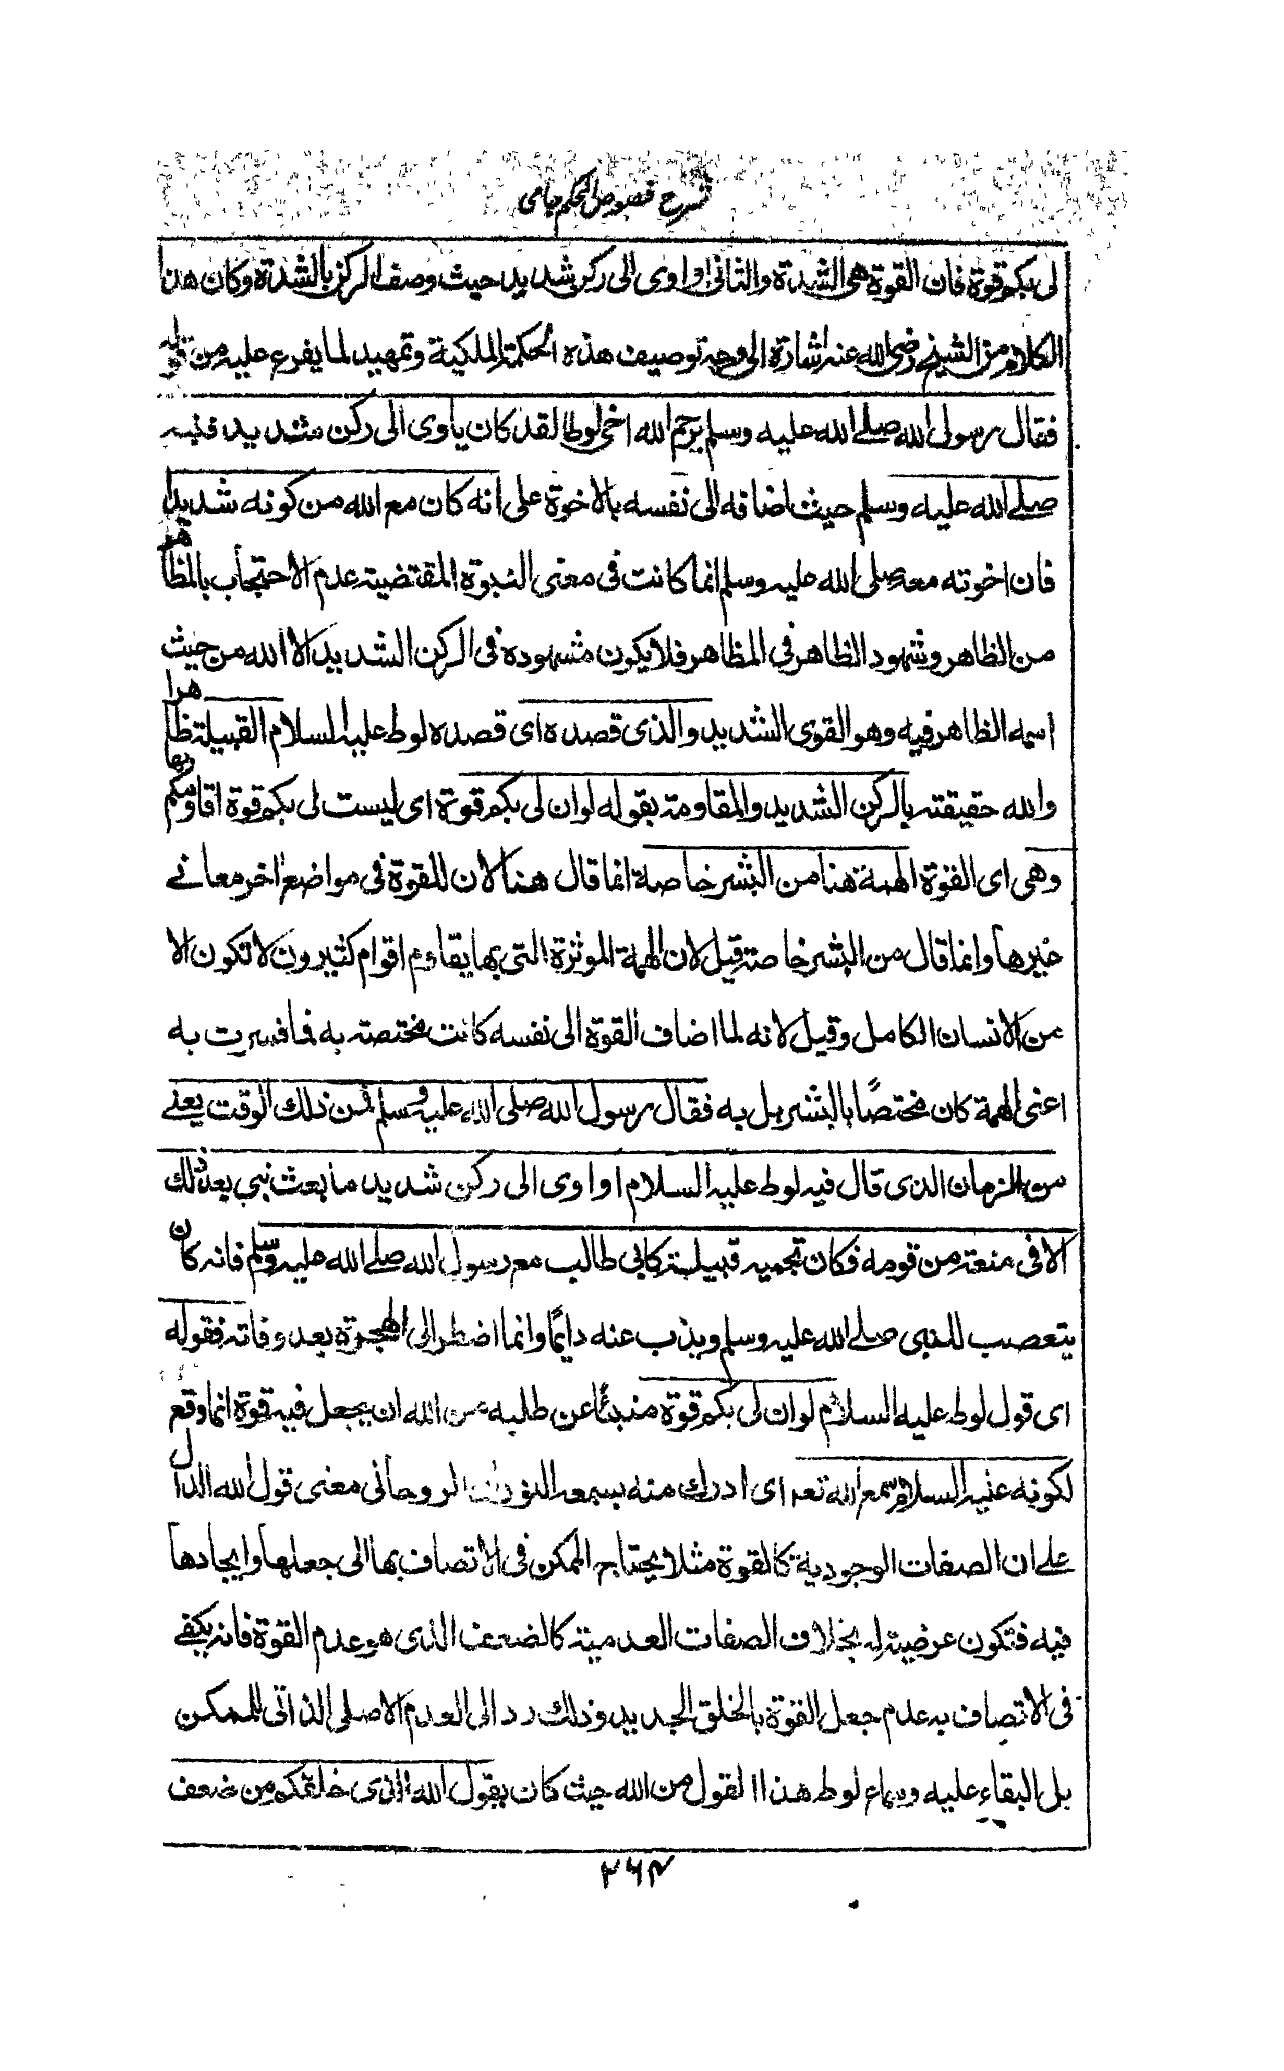 شرح فصوص الحكم جامی
لی بكم قوة فان القوة هی الشدة والثانی او اوی الی ركن شدید حیث وصف الركن بالشدة وكان هذا
الكلام من الشیخ رضی الله عنه اشارة الی وجه توصیف هذه الحكمة الملكیة وتمهید لما یفرع علیه من قوله
فقال رسول الله صلے الله علیه وسلم یرحم الله اخی لوطا لقد كان یاوی الی ركن شدید فنبه
صلے الله علیه وسلم حیث اضافه الی نفسه بالاخوة علی انه كان مع الله من كونه شدیدا
فان اخوته معه صلی الله علیه وسلم انما كانت فی معنی النبوة المقتضیة عدم الاحتجاب بالمظاهر
من الظاهر وشهود الظاهر فی المظاهر فلا یكون مشهوده فی الركن الشدید الا الله من حیث
اسمه الظاهر فیه وهو القوی الشدید والذی قصده ای قصده لوط علیه السلام القبیلة ظاهرا
والله حقیقته بالركن الشدید والمقاومة بقوله لوان لی بكم قوة ای لیست لی بكم قوة اقاومكم بها
وهی ای القوة الهمة هنا من البشر خاصة انما قال هنا لان للقوة فی مواضع اخر معانے
غیرها وانما قال من البشر خاصة قیل لان الهمة المؤثرة التی بها یقاوم اقوام كثیرون لا تكون الا
من الانسان الكامل وقیل لانه لما اضاف القوة الی نفسه كانت مختصة به فما فسرت به
اعنی الهمة كان مختصًا بالبشر بل به فقال رسول الله صلی الله علیه وسلم فمن ذلك الوقت یعنے
من الزمان الذی قال فیه لوط علیه السلام او اوی الی ركن شدید ما بعث نبی بعد ذلك
الا فی منعة من قومه فكان تحمیه قبیلته كابی طالب مع رسول الله صلے الله علیه وسلم فانه كان
یتعصب للنبی صلے الله علیه وسلم ویذب عنه دایمًا وانما اضطر الی الهجرة بعد وفاته فقوله
ای قول لوط علیه السلام لوان لی بكم قوة منبئًا عن طلبه من الله ان یجعل فیه قوة انما وقع
لكونه علیه السلام سمع الله تعه ای ادرك منه بسمعه النورانی الروحانی معنی قول الله الدال
علے ان الصفات الوجودیة كالقوة مثلا یحتاج الممكن فی الاتصاف بها الی جعلها وایجادها
فیه فتكون عرضیة له بخلاف الصفات العدمیة كالضعف الذی هو عدم القوة فانه یكفے
فی الاتصاف به عدم جعل القوة بالخلق الجدید وذلك رد الی العدم الاصلی الذاتی للممكن
بل البقاء علیه وسماع لوط هذا القول من الله حیث كان یقول الله الذی خلقكم من ضعف
۲۶۴